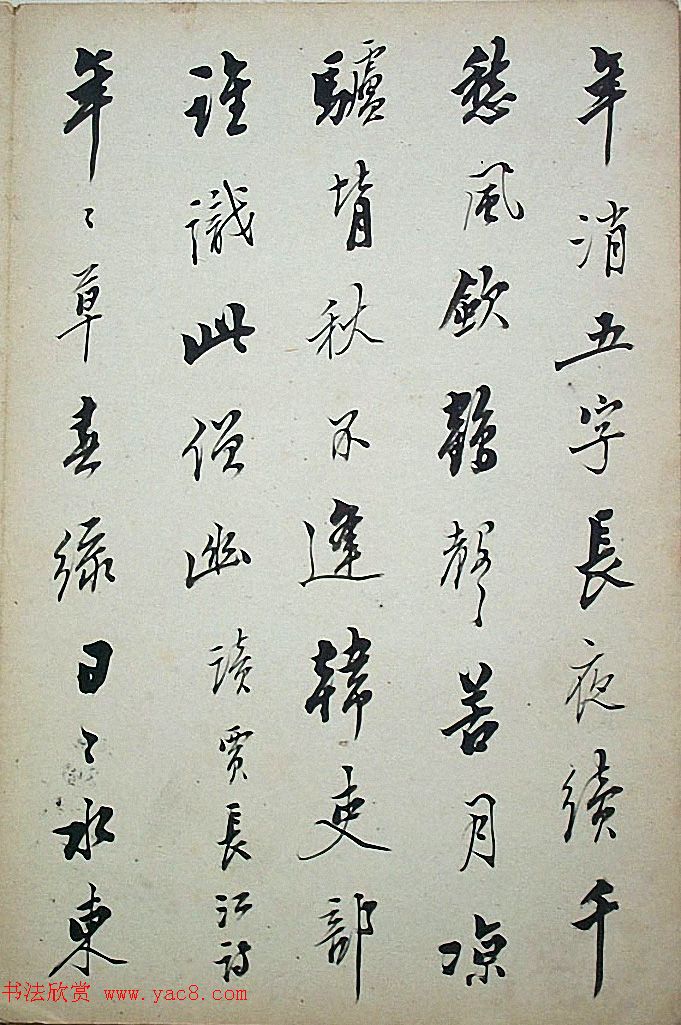 年消五字長夜續千
愁風欹鶴聲苦月涼
驢背秋不逢韓吏部
誰識此僧幽讀賈長江詩
年〻草春綠日〻水東
书法欣赏 www.yac8.com